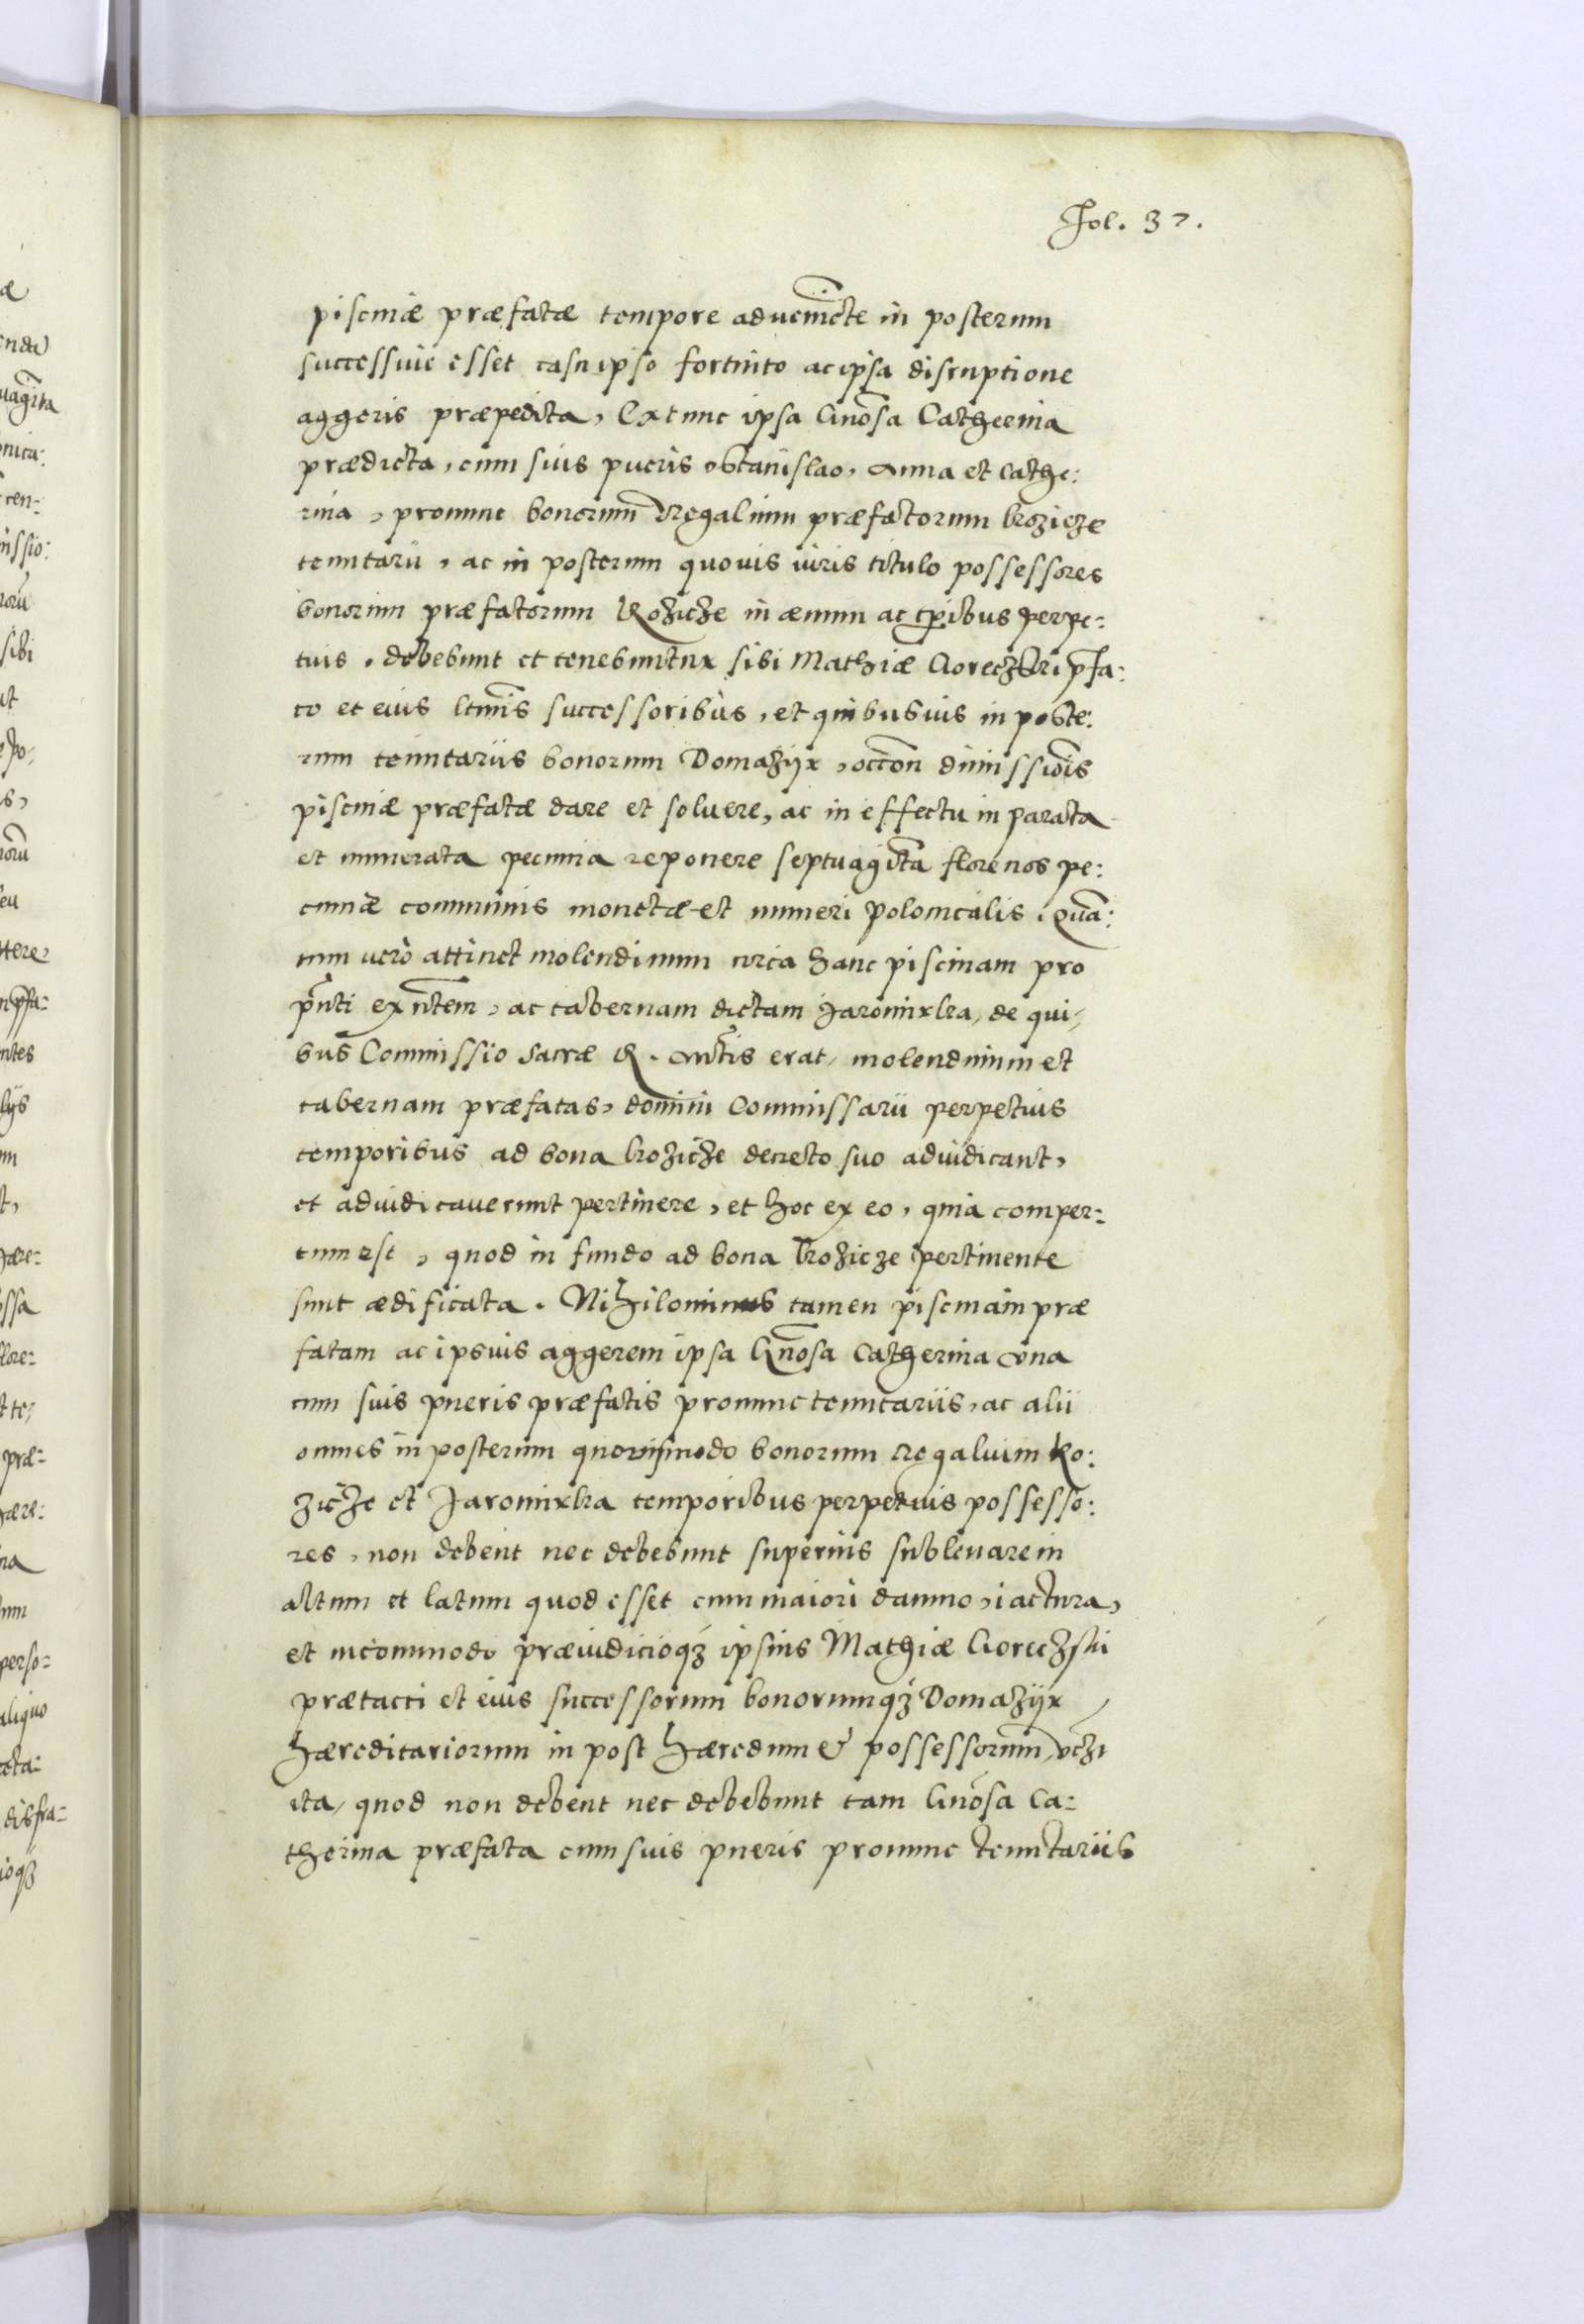 Fol. 37.
piscinæ præfatæ tempore adueniẽte in posterum
successiue esset casu ipso fortuito ac ipsa disruptione
aggeris præpedita, Extunc ipsa Gnõsa Catherina
prædicta, cum suis pueris Stanislao, Anna et Cathe:
rina, pronunc bonorum Regalium præfatorum Kozicze
tenutarii, ac in posterum quouis iuris titulo possessores
bonorum præfatorum Kozicze in æuum ac tp̃ibus perpe:
tuis, debebunt et tenebuntur sibi Mathiæ Goreczki p̃fa:
to et eius ltm̃is successoribus, et quibusuis in poste:
rum tenutariis bonorum Domazijr, occõn dimissiõis
piscinæ præfatæ dare et soluere, ac in effectu in parata
et numerata pecunia reponere septuagĩta florenos pe:
cuniæ communis monetæ et numeri polonicalis. Quã:
tum uerò attinet molendinum circa hanc piscinam pro
p̃nti exñtem, ac tabernam dictam Jaromirka, de qui
bus Commissio Sacræ R. Mtis erat, molendinum et
tabernam præfatas, domini Commissarii perpetuis
temporibus ad bona Kozicze decreto suo adiudicant,
et adiudicauerunt pertinere, et hoc ex eo, quia comper:
tum est, quod in fundo ad bona Kozicze pertinente
sunt ædificata. Nihilominus tamen piscinam præ
fatam ac ipsius aggerem ipsa Gnõsa Catherina vna
cum suis pueris præfatis pronunc tenutariis, ac alii
omnes in posterum quouismodo bonorum regalium Ko:
zicze et Jaromirka temporibus perpetuis possesso:
res, non debent nec debebunt superius subleuare in
altum et latum quod esset cum maiori damno, iactura,
et incommodo præiudicioq3 ipsius Mathiæ Goreczski
prætacti et eius successorum bonorumq3 Domazijr
hæreditariorum in post hæredum & possessorum,
ita, quod non debent nec debebunt tam Gnõsa Ca:
therina præfata cum suis pueris pronunc tenutariis